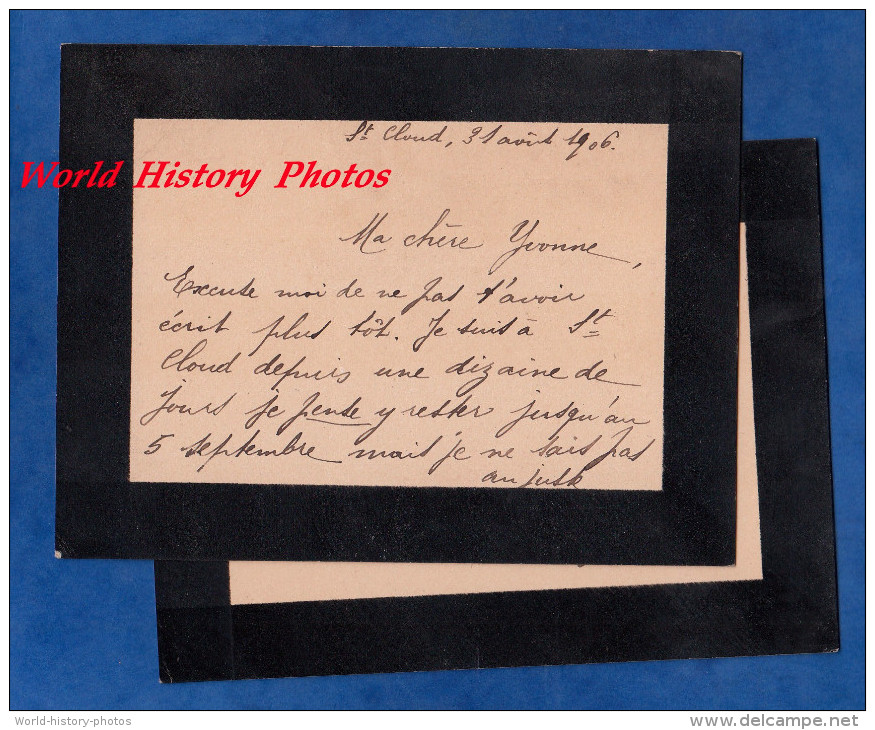 St Cloud, 31 août 1906.
World History Photos
Ma chère Yvonne,
Excuse moi de ne pas t'avoir
écrit plus tôt. Je suis à St
Cloud depuis une dizaine de
jours je pense y rester jusqu'au
5 septembre mais je ne sais pas
au juste
World-history-photos
delcampe.net